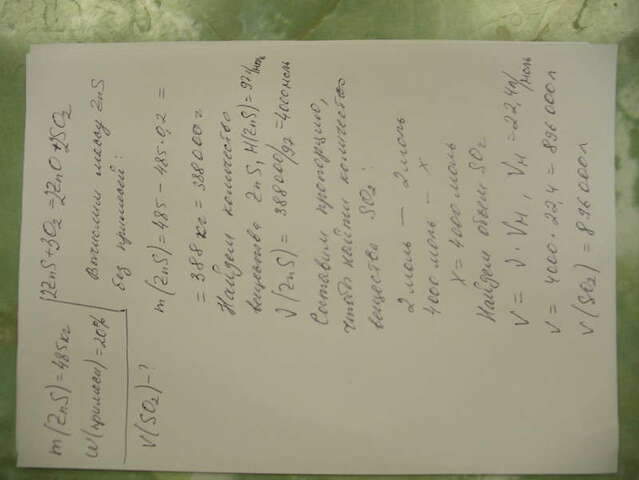 m(ZnS)=485кг
W(примеси)=20%
V(SO2)-?
2ZnS+3O2=2ZnO+2SO2
Вычислим массу ZnS
без примесей:
m(ZnS)=485-485·0,2=
=388кг=388000г
Найдем количество
вещества ZnS, M(ZnS)=97г/моль
ν(ZnS)=388000/97=4000моль
Составим пропорцию,
чтобы найти количество
вещества SO2:
2моль — 2моль
4000моль — x
x=4000моль
Найдем объем SO2
V=ν·VM, VM=22,4л/моль
V=4000·22,4=896000л
V(SO2)=896000л